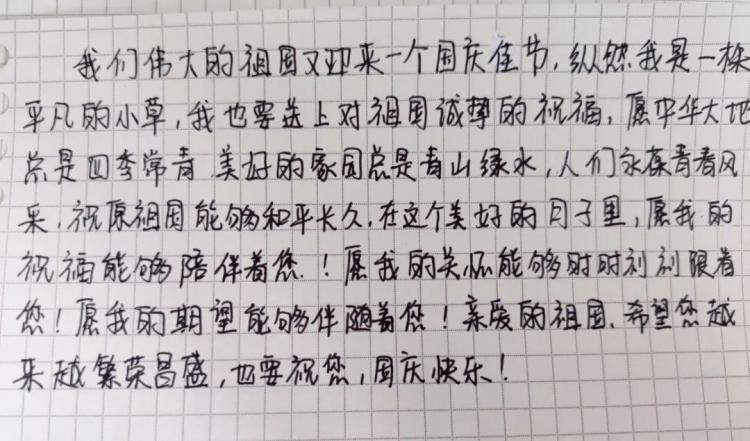 我们伟大的祖国又迎来一个国庆佳节，纵然我是一株
平凡的小草，我也要送上对祖国诚挚的祝福，愿中华大地
总是四季常青 美好的家园总是青山绿水，人们永葆青春风
采，祝原祖国能够和平长久，在这个美好的日子里，愿我的
祝福能够陪伴着您．！愿我的关怀能够时时刻刻跟着
您！愿我的期望能够伴随着您！亲爱的祖国、希望您越
来越繁荣昌盛，也要祝您，国庆快乐！